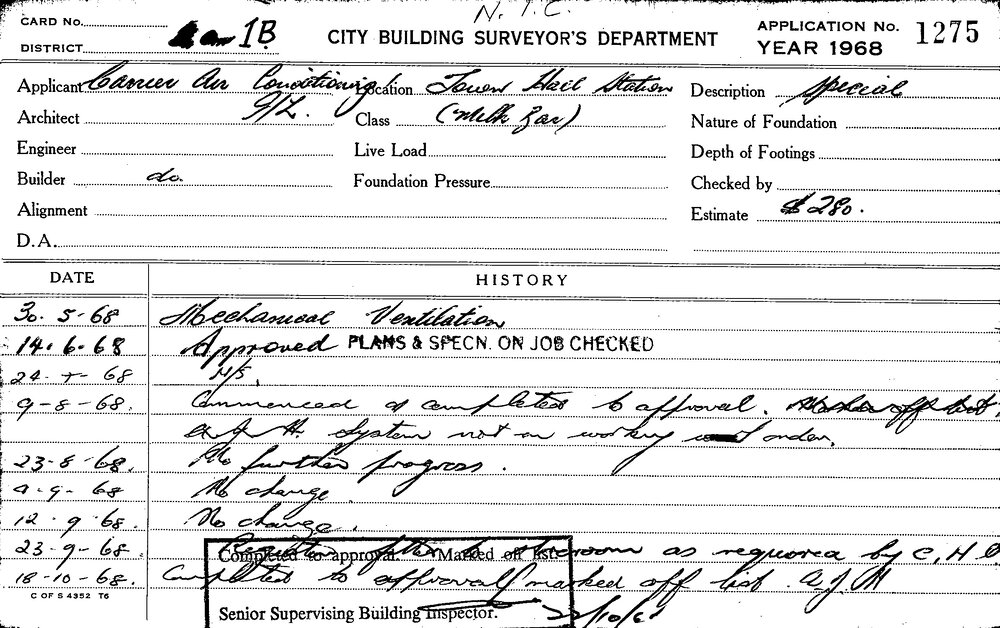 N.I.C.
CARD No.
DISTRICT
1B
CITY BUILDING SURVEYOR'S DEPARTMENT
APPLICATION No. 1275
YEAR 1968
Applicant Carrier Air Conditioning Location Town Hall Station Description Special
Architect P/L. Class (Milk Bar) Nature of Foundation
Engineer Live Load Depth of Footings
Builder do. Foundation Pressure Checked by
Alignment Estimate $280.
D.A.
DATE HISTORY
30.5-68 Mechanical Ventilation
14.6.68 Approved PLANS & SPECN. ON JOB CHECKED
24-7-68 N/S.
9-8-68. Commenced & completed to approval. Marked off list
A.J.H. System not in working order.
23-8-68. No further progress.
9-9-68 No change.
12.9.68. No change.
23-9-68. as required by C.H.O
18-10-68. Completed to approval marked off list A.J.H
Completed to approval. Marked off list.
Senior Supervising Building Inspector. 22/10/68
C OF S 4352 T6